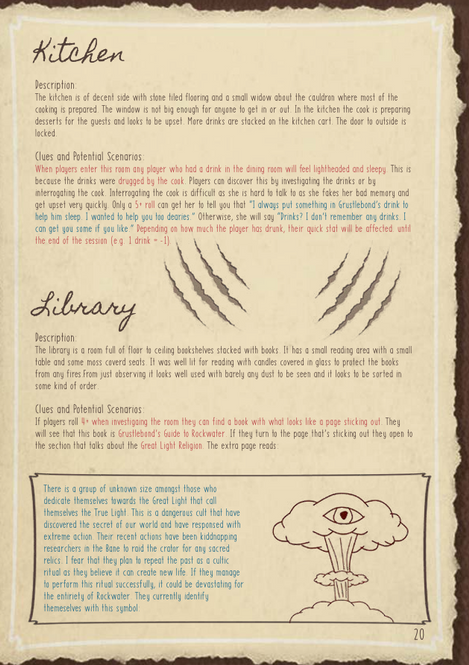 Kitchen
Description:
The kitchen is of decent side with stone tiled flooring and a small widow about the cauldron where most of the
cooking is prepared. The window is not big enough for anyone to get in or out. In the kitchen the cook is preparing
desserts for the guests and looks to be upset. More drinks are stacked on the kitchen cart. The door to outside is
locked.
Clues and Potential Scenarios:
When players enter this room any player who had a drink in the dining room will feel lightheaded and sleepy. This is
because the drinks were drugged by the cook. Players can discover this by investigating the drinks or by
interrogating the cook. Interrogating the cook is difficult as she is hard to talk to as she fakes her bad memory and
get upset very quickly. Only a 5+ roll can get her to tell you that "I always put something in Grustlebond's drink to
help him sleep. I wanted to help you too dearies." Otherwise, she will say "Drinks? I don't remember any drinks. I
can get you some if you like." Depending on how much the player has drunk, their quick stat will be affected: until
the end of the session (e.g. 1 drink = -1).
Library
Description:
The library is a room full of floor to ceiling bookshelves stacked with books. It has a small reading area with a small
table and some moss coverd seats. It was well lit for reading with candles covered in glass to protect the books
from any fires.From just observing it looks well used with barely any dust to be seen and it looks to be sorted in
some kind of order.
Clues and Potential Scenarios:
If players roll 4+ when investigaing the room they can find a book with what looks like a page sticking out. They
will see that this book is Grustlebond's Guide to Rockwater. If they turn to the page that's sticking out they open to
the section that talks about the Great Light Religion. The extra page reads:
There is a group of unknown size amongst those who
dedicate themselves towards the Great Light that call
themselves the True Light. This is a dangerous cult that have
discovered the secret of our world and have responsed with
extreme action. Their recent actions have been kidnapping
researchers in the Bane to raid the crator for any sacred
relics. I fear that they plan to repeat the past as a cultic
ritual as they believe it can create new life. If they manage
to perform this ritual successfully, it could be devastating for
the entiriety of Rockwater. They currently identify
themeselves with this symbol
20